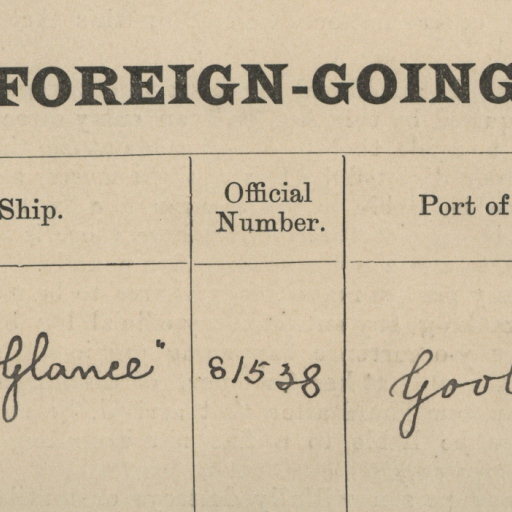 FOREIGN-GOING
Ship.
Official
Number.
Port of
Glance"
81538
Gool